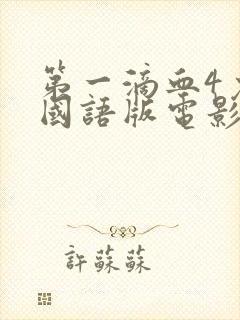 第一滴血4
國語版電影
許蘇蘇